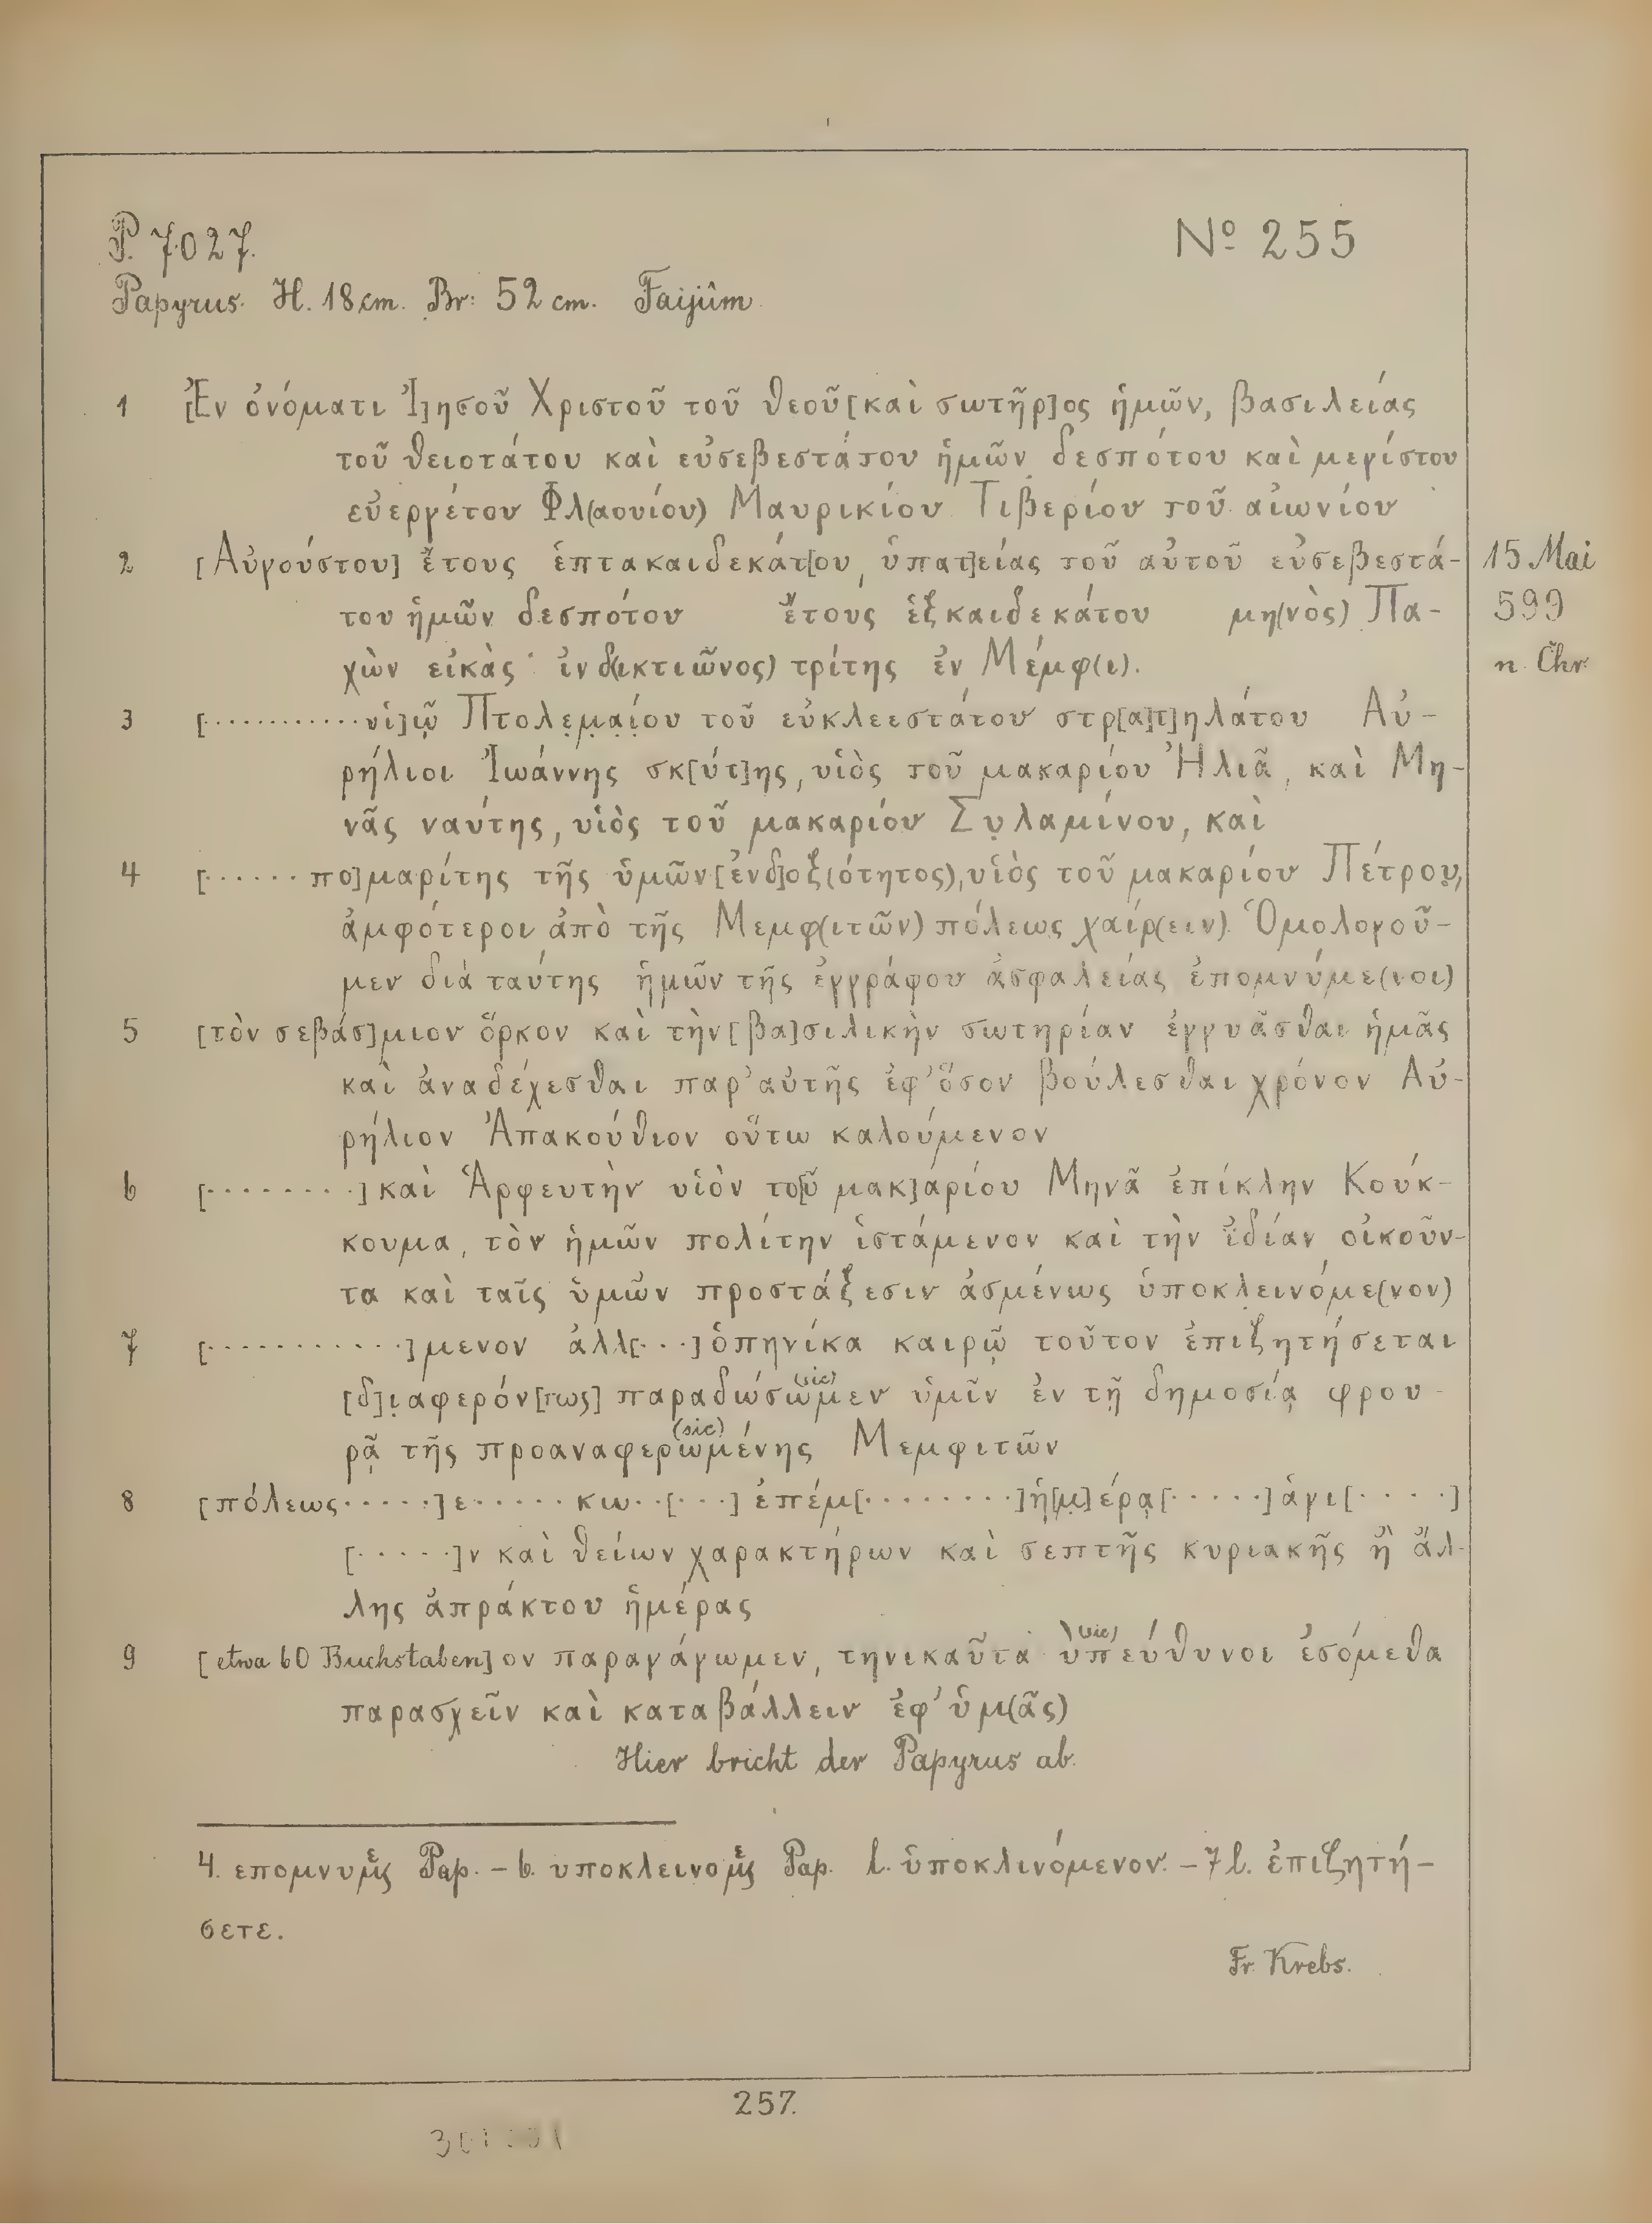 P. 7027. Nº 255
Papyrus. H. 18 cm. Br: 52 cm. Faijûm.
1 [Ἐν ὀνόματι Ἰ]ησοῦ Χριστοῦ τοῦ θεοῦ [καὶ σωτῆρ]ος ἡμῶν, βασιλείας
τοῦ θειοτάτου καὶ εὐσεβεστάτου ἡμῶν δεσπότου καὶ μεγίστου
εὐεργέτου Φλ(αουίου) Μαυρικίου Τιβερίου τοῦ αἰωνίου
2 [Αὐγούστου] ἔτους ἑπτακαιδεκάτ[ου, ὑπατ]είας τοῦ αὐτοῦ εὐσεβεστά- 15 Mai
του ἡμῶν δεσπότου ἔτους ἑξκαιδεκάτου μη(νὸς) Πα- 599
χὼν εἰκὰς ἰνδ(ικτιῶνος) τρίτης ἐν Μέμφ(ι). n. Chr.
3 [············υἱ]ῷ Πτολε̣μ̣α̣ί̣ου τοῦ εὐκλεεστάτου στρ[α]τ]ηλάτου Αὐ-
ρήλιοι Ἰωάννης σκ[ύτ]ης, υἱὸς τοῦ μακαρίου Ἠλιᾶ, καὶ Μη-
νᾶς ναύτης, υἱὸς τοῦ μακαρίου Συ̣λαμίνου, καὶ
4 [······πο]μαρίτης τῆς ὑμῶν [ἐνδ]οξ(ότητος), υἱὸς τοῦ μακαρίου Πέτρου̣,
ἀμφότεροι ἀπὸ τῆς Μεμφ(ιτῶν) πόλεως χαίρ(ειν). Ὁμολογοῦ-
μεν διὰ ταύτης ἡμῶν τῆς ἐγγράφου ἀσφαλείας ἐπομνύμε(νοι)
5 [τὸν σεβάσ]μιον ὅρκον καὶ τὴν [βα]σιλικὴν σωτηρίαν ἐγγυᾶσθαι ἡμᾶς
καὶ ἀναδέχεσθαι παρ’ αὐτῆς ἐφ’ ὅσον βούλεσθαι χρόνον Αὐ-
ρήλιον Ἀπακούθιον οὕτω καλούμενον
6 [·········] καὶ Ἁρφευτὴν υἱὸν το[ῦ μακ]αρίου Μηνᾶ ἐπίκλην Κούκ-
κουμα, τὸν ἡμῶν πολίτην ἱστάμενον καὶ τὴν ἰδίαν οἰκοῦν-
τα καὶ ταῖς ὑμῶν προστάξεσιν ἀσμένως ὑποκλ̣εινόμε(νον)
7 [············]μενον ἀλλ[···] ὁπηνίκα καιρῷ τοῦτον ἐπιζητήσεται
[δ]ι̣αφερόν[τως] παραδώσωμεν (sic) ὑμῖν ἐν τῇ δημοσίᾳ φρου-
ρᾷ τῆς προαναφερωμένης (sic) Μεμφιτῶν
8 [πόλεως·····]ε······κω··[···] ἐπέμ[·········]ἡ[μ]έρα̣[·····]ἁγι[····]
[·····]ν καὶ θείων χαρακτήρων καὶ σεπτῆς κυριακῆς ἢ ἄλ-
λης ἀπράκτου ἡμέρας
9 [etwa 60 Buchstaben]ον παραγάγωμεν, τηνικαῦτα ὑπεύθυνοι (sic) ἐσόμεθα
παρασχεῖν καὶ καταβάλλειν ἐφ’ ὑμ(ᾶς)
Hier bricht der Papyrus ab.
4. επομνυμε Pap. – 6. υποκλεινομε Pap. l. ὑποκλινόμενον. – 7 l. ἐπιζητή-
σετε.
Fr. Krebs.
257.